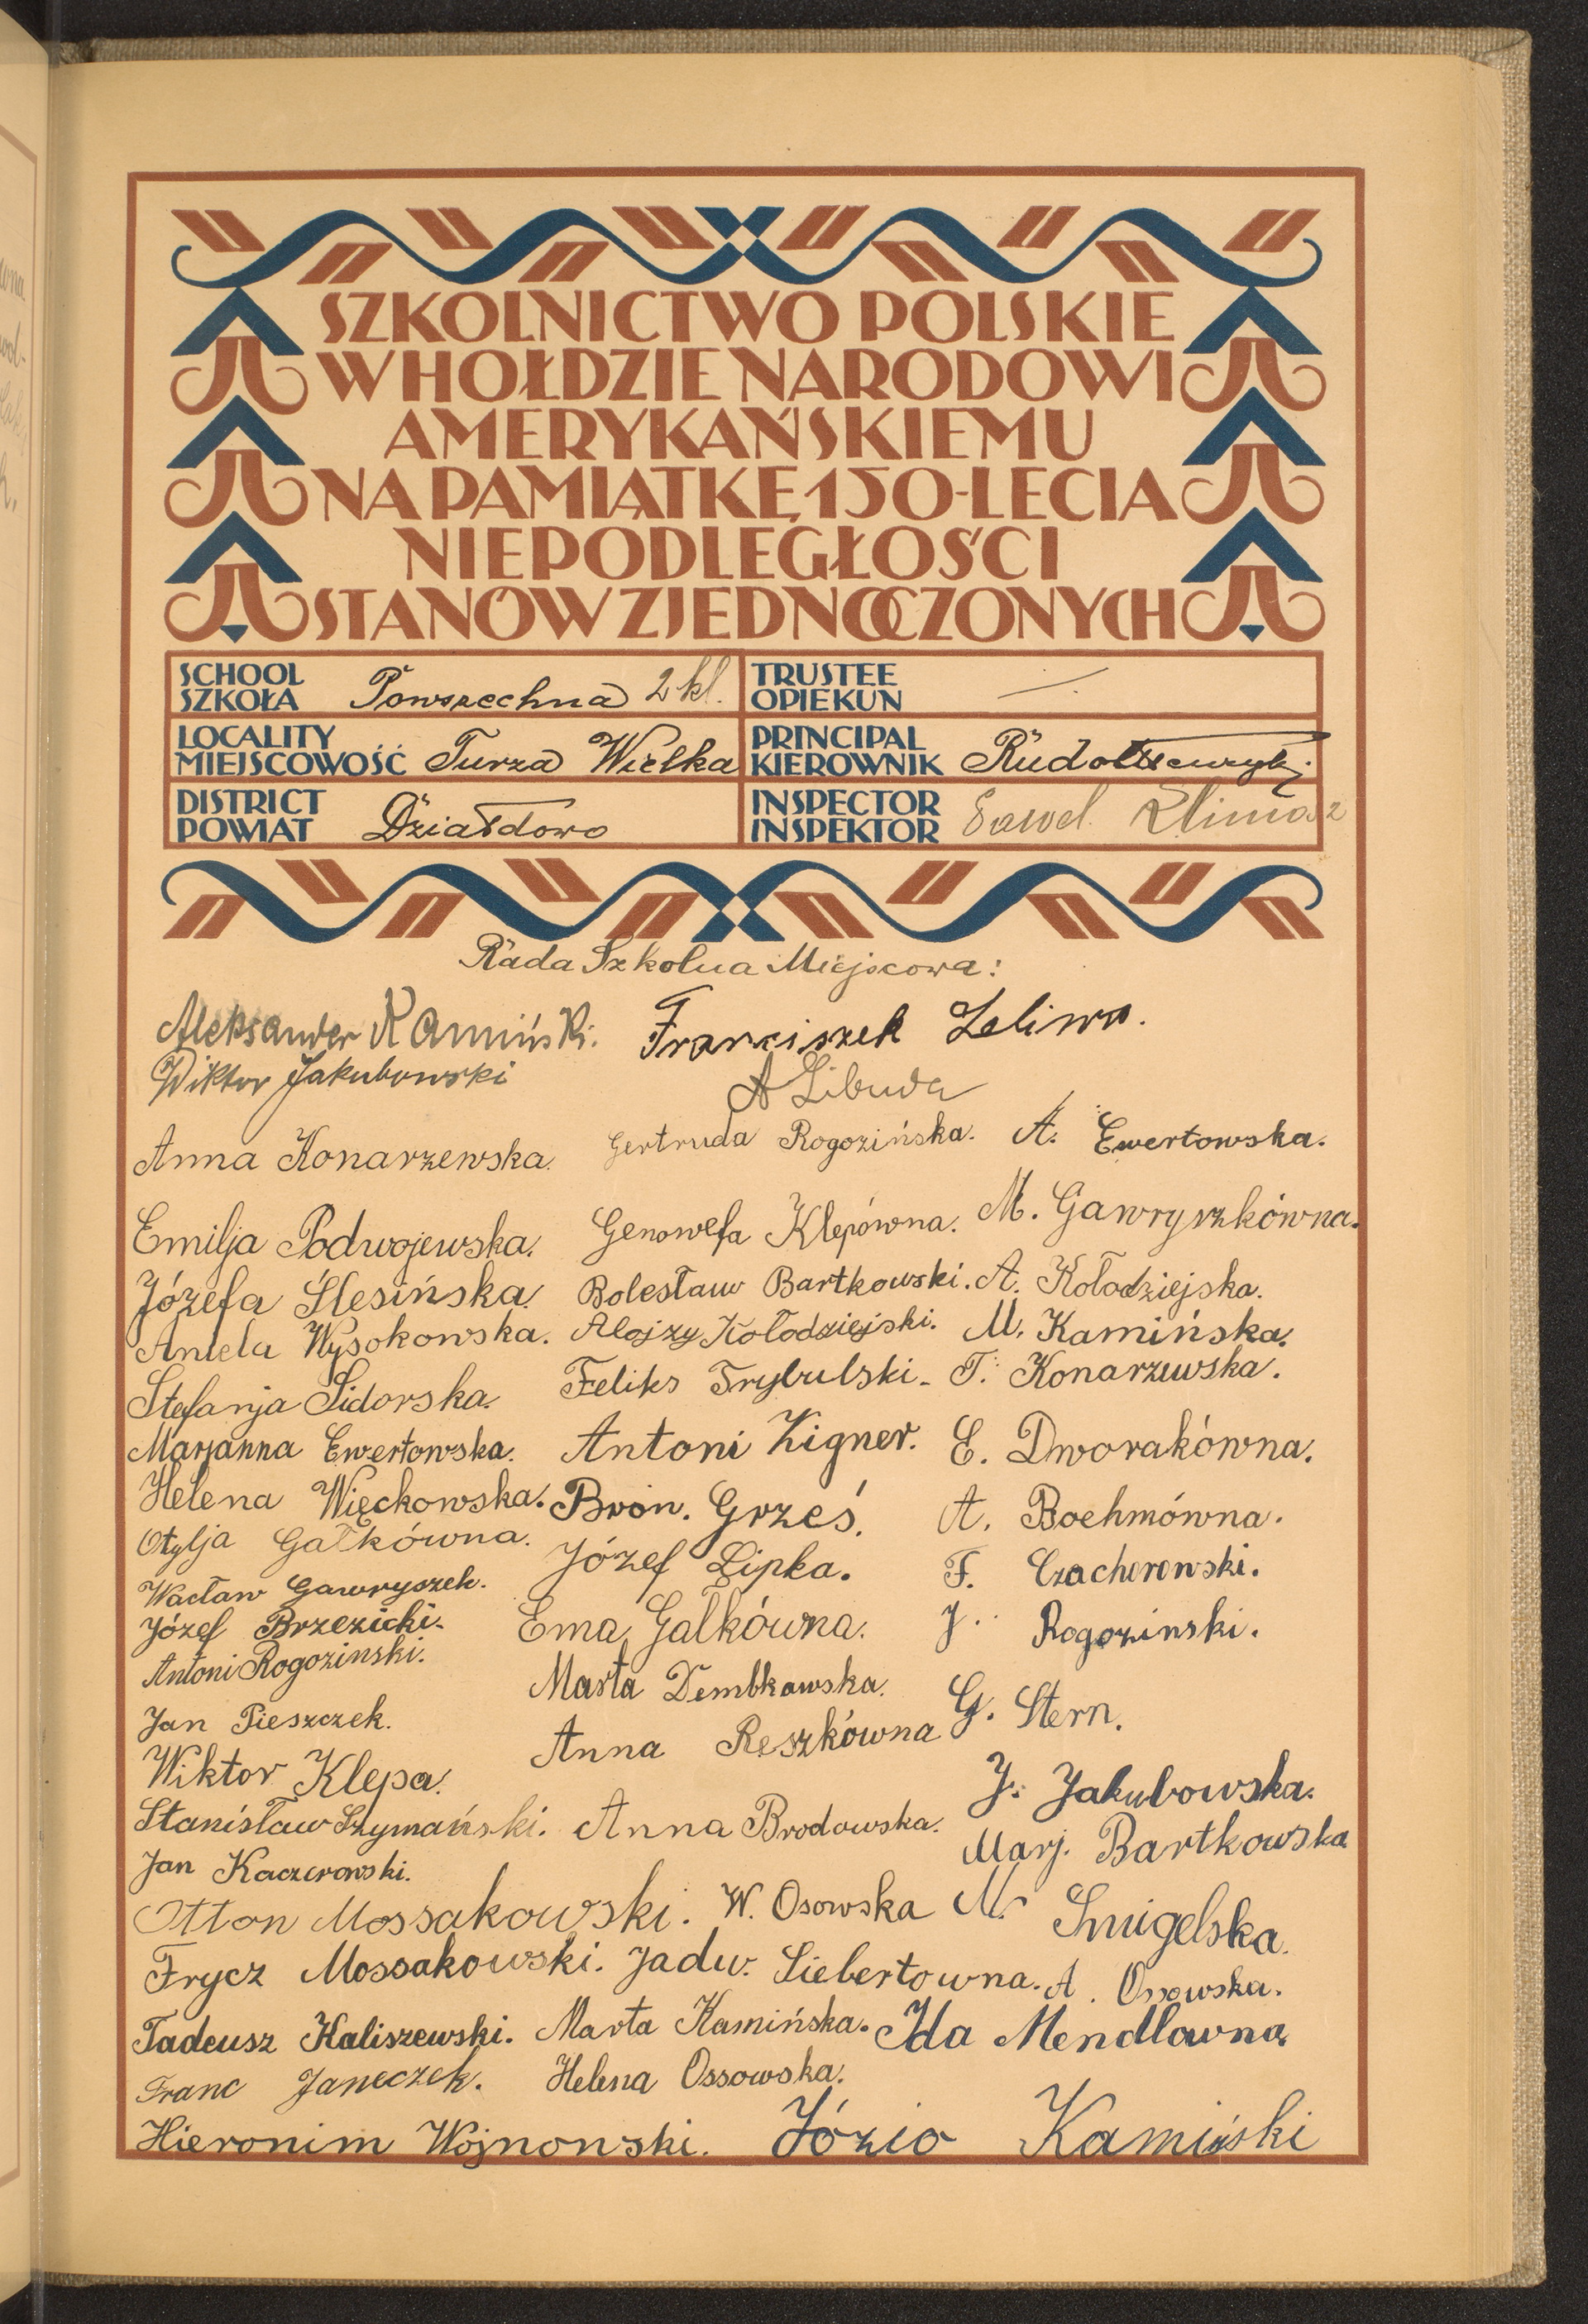 SZKOLNICTWO POLSKIE
W HOŁDZIE NARODOWI
AMERYKAŃSKIEMU
NA PAMIĄTKĘ 150-LECIA
NIEPODLEGŁOŚCI
STANÓW ZJEDNOCZONYCH
SCHOOL
SZKOŁA Powszechna 2 kl.
TRUSTEE
OPIEKUN
LOCALITY
MIEJSCOWOŚĆ Turza Wielka
PRINCIPAL
KIEROWNIK
DISTRICT
POWIAT Działdowo
INSPECTOR
INSPEKTOR
Rada Szkolna Miejscowa:
Aleksander Kamiński. Franciszek Zeliwa.
Wiktor Jakubowski A Libuda
Anna Konarzewska. Gertruda Rogozińska. A. Ewertowska.
Emilja Podwojewska. Genowefa Klepówna. M. Gawryszkówna.
Józefa Ślesińska. Bolesław Bartkowski. A. Kołodziejska.
Aniela Wysokowska. Alojzy Kołodziejski. M. Kamińska.
Stefanja Sidorska. Feliks Trybulski. T. Konarzewska.
Marjanna Ewertowska. Antoni Zigner. E. Dworakówna.
Helena Więckowska. Bron. Grześ. A. Boehmówna.
Otylja Gałkówna. Józef Lipka. F. Czacherowski.
Wacław Gawryszek. Ema Gałkówna. J. Rogozinski.
Józef Brzezicki. Marta Dembkowska. G. Stern.
Antoni Rogozinski. Anna Reszkówna J. Jakubowska.
Jan Pieszczek. Anna Brodowska. Marj. Bartkowska
Wiktor Klepa. W. Osowska M. Smigelska.
Stanisław Szymański. Jadw. Siebertowna. A. Ossowska.
Jan Kaczerowski. Marta Kamińska. Ida Mendlowna
Otton Mossakowski. Helena Ossowska.
Frycz Mossakowski.
Tadeusz Kaliszewski.
Franc Janeczek.
Hieronim Wojnonski. Józio Kamiński